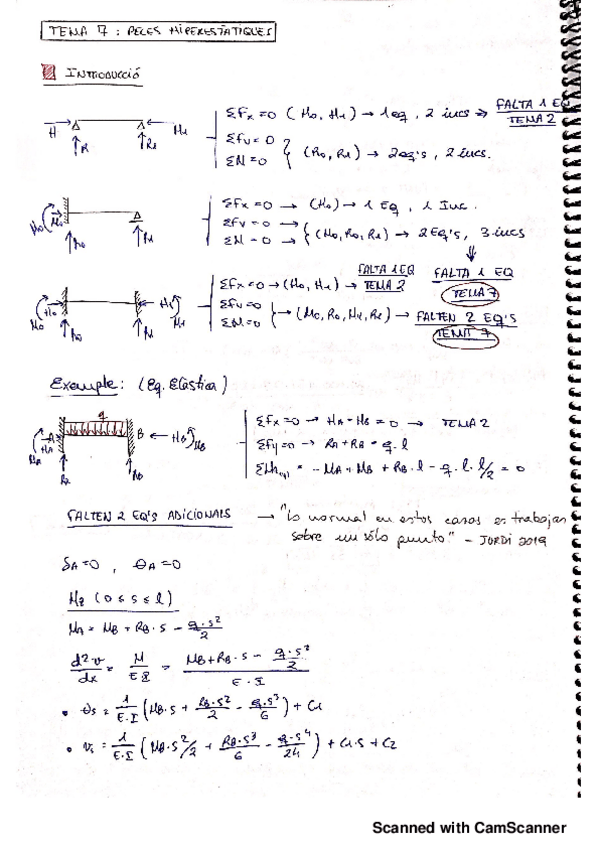 TEMA 7 : PECES HIPERESTÀTIQUES
INTRODUCCIÓ
H R R₁ H₁
ΣFx = 0 (H₀, H₁) → 1 eq, 2 incs ⇒ FALTA 1 EQ TEMA 2
ΣFv = 0
ΣM = 0
(R₀, R₁) → 2 eq's, 2 incs.
M₀ H₀ R₀ R₁
ΣFx = 0 → (H₀) → 1 EQ, 1 Inc.
ΣFv = 0 →
ΣM = 0 →
(M₀, R₀, R₁) → 2 EQ's, 3 incs
⇓
FALTA 1 EQ
TEMA 7
M₀ H₀ R₀ R₁ H₁ M₁
ΣFx = 0 → (H₀, H₁) → FALTA 1 EQ TEMA 2
ΣFv = 0
ΣM = 0
→ (M₀, R₀, M₁, R₁) → FALTEN 2 EQ'S
TEMA 7
Exemple: (Eq. Elàstica)
q
A B
MA HA RA RB HB MB
ΣFx = 0 → HA - HB = 0 → TEMA 2
ΣFy = 0 → RA + RB = q · l
= - MA + MB + RB · l - q · l · l/2 = 0
FALTEN 2 EQ'S ADICIONALS → "Lo normal en estos casos es trabajar
sobre un sólo punto" - JORDI 2019
δA = 0 , θA = 0
(0 ≤ s ≤ l)
= MB + RB · s - q·s²/2
d²v/dx = M/EI = (MB + RB · s - q·s²/2)/(E · I)
• θs = 1/(E·I) (MB · s + RB·s²/2 - q·s³/6) + C₁
• = 1/(E·I) (MB · s²/2 + RB·s³/6 - q·s⁴/24) + C₁·s + C₂
Scanned with CamScanner